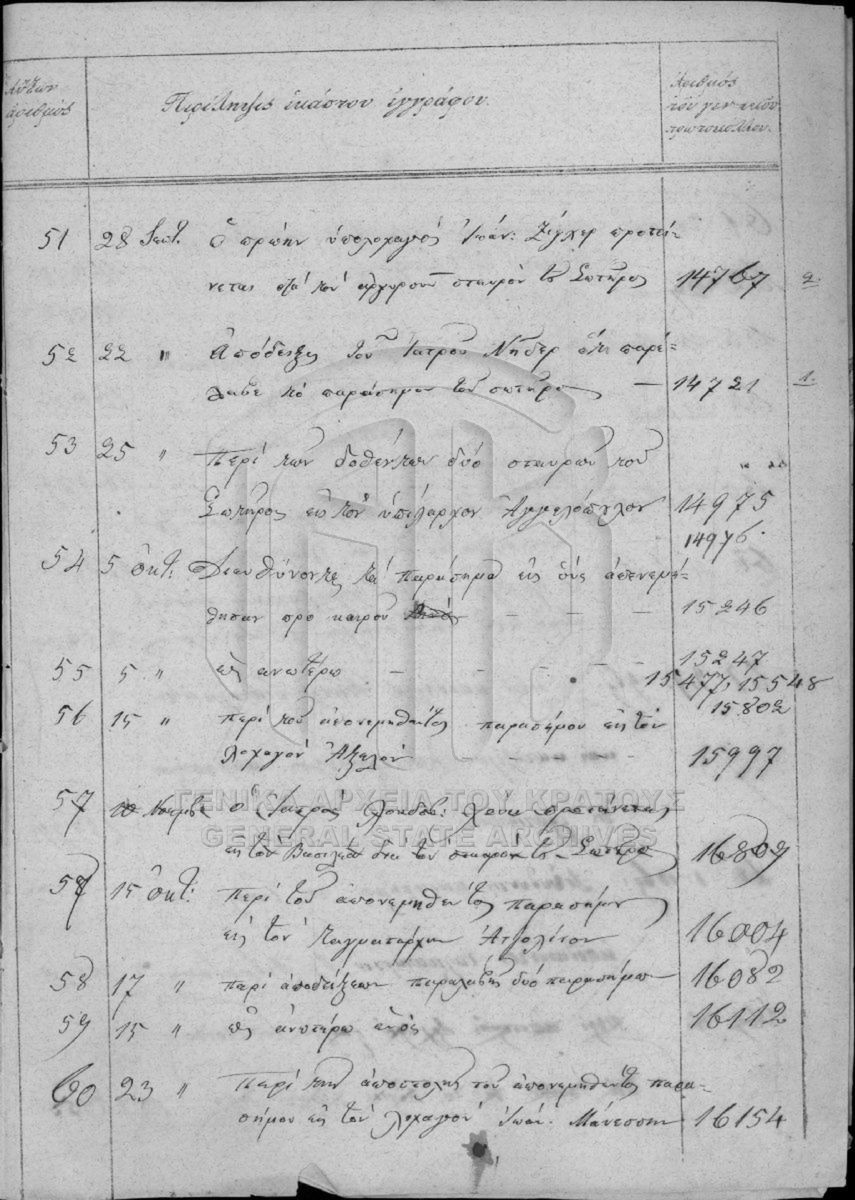 Αὔξων ἀριθμός
Περίληψις ἑκάστου ἐγγράφου.
Ἀριθμός
τοῦ γενικοῦ
πρωτοκόλλου.
51 28 Σεπτ. Ὁ πρώην ὑπολοχαγός Ἰωάν: Ζίγλερ προτεί-
νεται διά τον ἀργυροῦν σταυρόν τοῦ Σωτῆρος 14767 2.
52 22 " Ἀπόδειξις τοῦ ἰατροῦ Νήδερ ὅτι παρέ-
λαβε τό παράσημον τοῦ σωτῆρος — 14721 1.
53 25 " Περί των δοθέντων δύο σταυρῶν του
Σωτῆρος εἰς τόν ὑπίλαρχον Ἀγγελόπουλον 14975
14976.
54 5 Ὀκτ: Διευθύνοντες τά παράσημα εἰς οὕς ἀπενεμή-
θησαν προ καιροῦ — — — 15246
15247
55 5 " ὡς ἀνωτέρω — — — — 15477, 15548
15802
56 15 " περί του ἀπονεμηθέντος παρασήμου εἰς τόν
λοχαγόν — — 15997
57 10 Νοεμβ ὁ ἰατρός προτείνεται
εἰς τόν Βασιλέα διά τον σταυρον τοῦ Σωτῆρος 16809
58 15 Ὀκτ: περί τοῦ ἀπονεμηθέντος παρασήμου
εἰς τόν ταγματάρχην 16004
58 17 " περί ἀποδείξεων παραλαβῆς δύο παρασήμων 16082
59 15 " ὡς ἀνωτέρω ἑνός 16112
60 23 " Περί της ἀποστολῆς τοῦ ἀπονεμηθέντος παρα-
σήμου εἰς τόν λοχαγόν Ἰωάν: Μάνεσσην 16154
ΓΕΝΙΚΑ ΑΡΧΕΙΑ ΤΟΥ ΚΡΑΤΟΥΣ
GENERAL STATE ARCHIVES